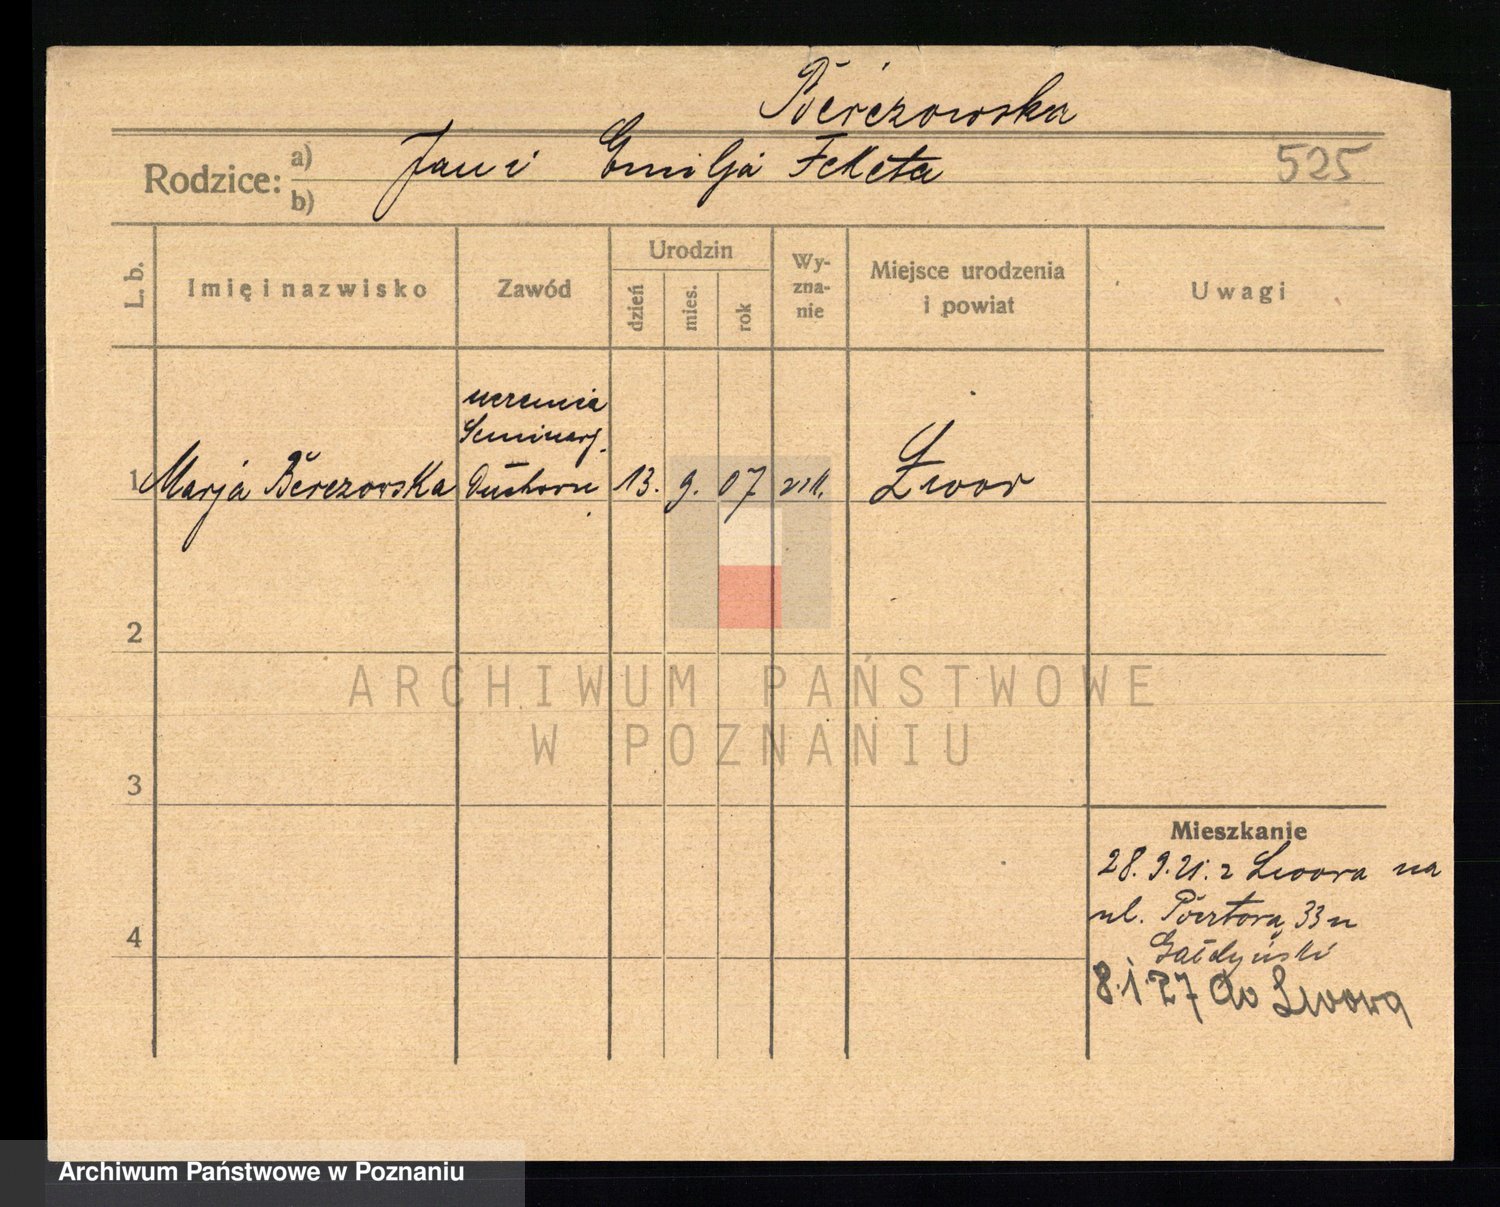 Berezowska
Rodzice: a) Jan i Emilja Feketa
b)
525
L. b.
Imię i nazwisko
Zawód
Urodzin
dzień
mies.
rok
Wy-
zna-
nie
Miejsce urodzenia
i powiat
Uwagi
uczenica
Seminarj.
1 Marja Berezowska 13. 9. 07 Lwow
2
3
4
Mieszkanie
28. 9. 21. z Lwowa na
ul. Pocztową 33 u
Gałdyński
8. 1 27 do Lwowa
ARCHIWUM PAŃSTWOWE
W POZNANIU
Archiwum Państwowe w Poznaniu